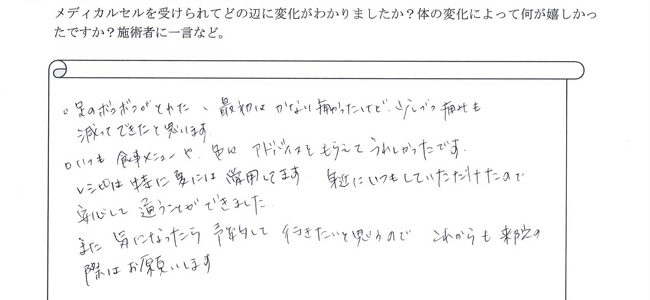 メディカルセルを受けられてどの辺に変化がわかりましたか？体の変化によって何が嬉しかっ
たですか？施術者に一言など。
○足のボコボコがとれた、最初はかなり痛かったけど、少しづつ痛みも
減ってできたと思います。
○いつも食事メニューや、色々アドバイスをもらえてうれしかったです。
レシピは特に夏には愛用してます 身近にいつもしていただけたので
安心して通うことができました。
また気になったら予約して行きたいと思うので これからも来院の
際はお願いします